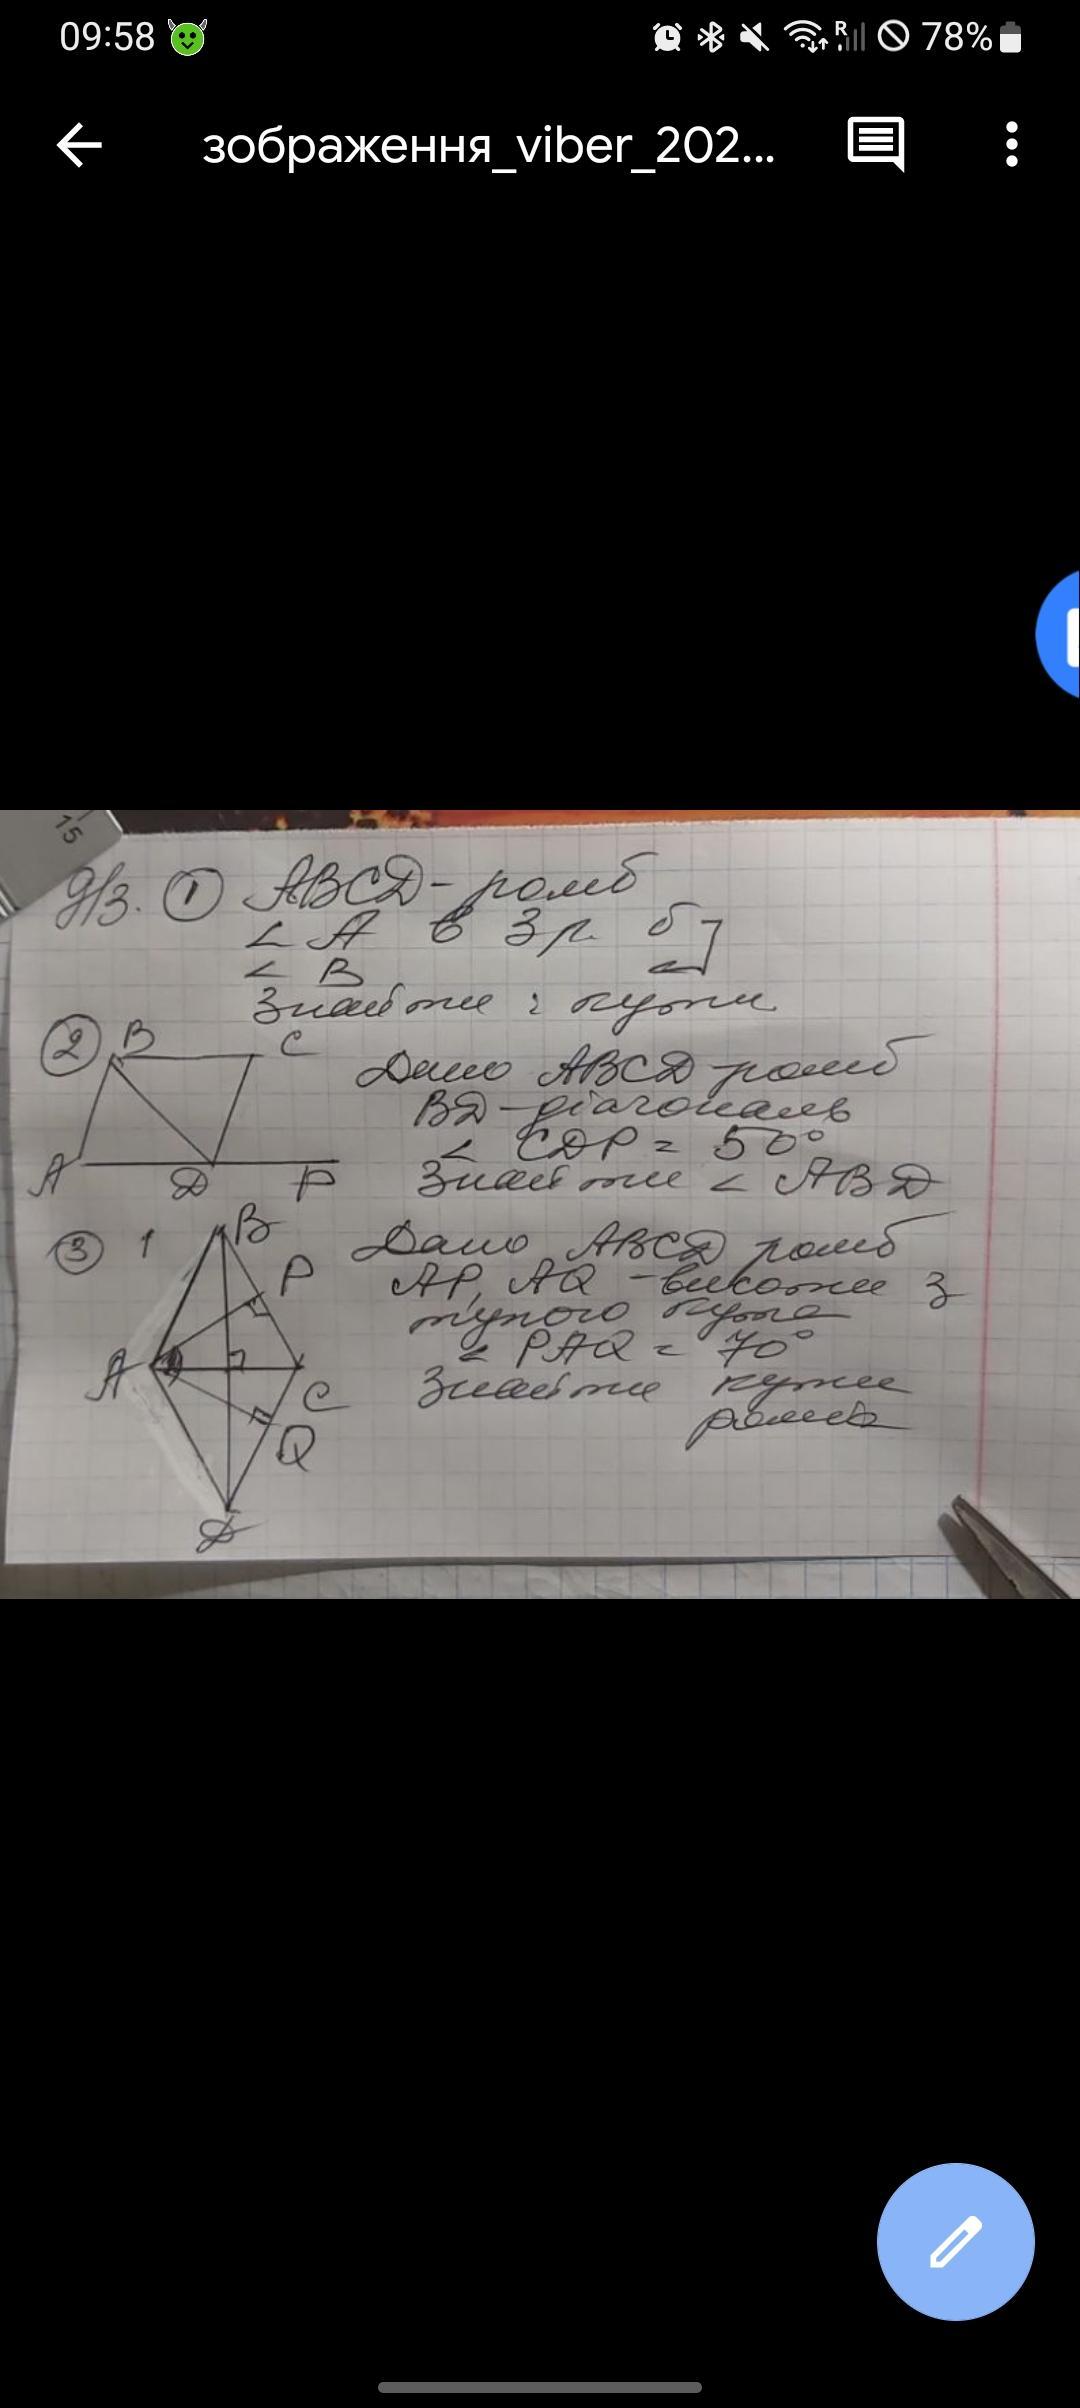 09:58
R
78%
зображення_viber_202...
15
д/з. 1 ABCD - ромб
< A в 3 р. б
< B
Знайти : кути
2 B C
Дано ABCD - ромб
BD - діагональ
< CDP = 50°
A D P
Знайти < ABD
3 1 B
Дано ABCD ромб
P
AP, AQ - висоти з
тупого кута
A
< PAQ = 70°
C
Знайти кути
ромба
Q
D